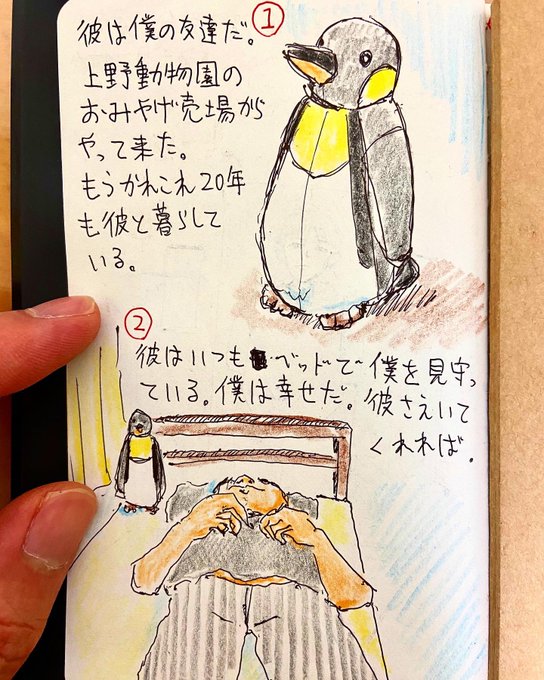 ①
彼は僕の友達だ。
上野動物園の
おみやげ売場が
やって来た。
もうかれこれ20年
も彼と暮らして
いる。
②
彼はいつもベッドで僕を見守っ
ている。僕は幸せだ。彼さえいて
くれれば.